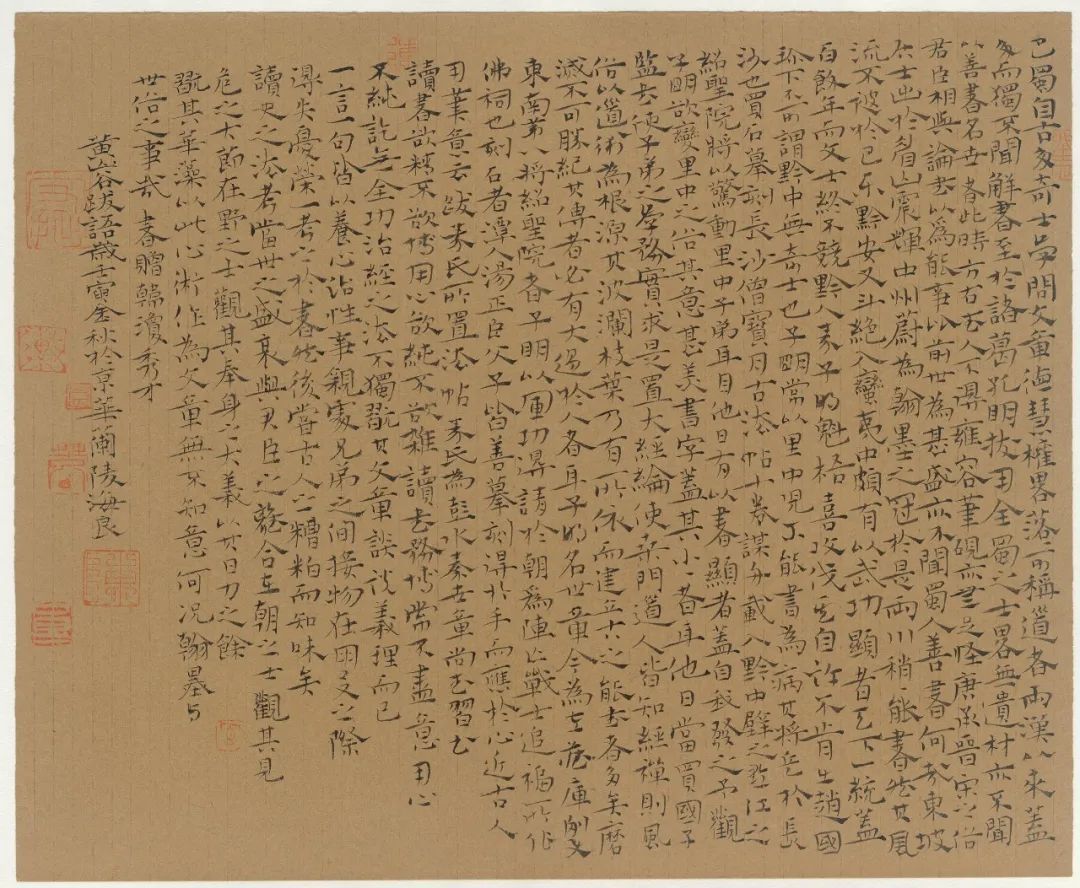 巴蜀自古多奇士學問文章德慧權畧落可稱道者兩漢以來蓋
多而獨不聞解書至於諸葛孔明拔用全蜀之士畧無遺材亦不聞
以善書名世者此時方右武人不得雍容筆硯亦無足怪唐承晉宋之俗
君臣相與論書以為能事比前世為甚盛亦不聞蜀人善書何哉東坡
居士出於眉山震輝中州蔚為翰墨之冠於是兩川稍能書然其風
流不被於巴東黔安又斗絕入蠻夷中頗有以武功顯者天下一統蓋
百餘年而文士終不競黔人秦子明魁梧喜攻伐其自許不肯出趙國
珍下不可謂黔中無奇士也子明常以里中兒不能書為病其將兵於長
沙也買石摹刻長沙僧寶月古法帖十卷謀舟載入黔中壁之黔江之
紹聖院將以驚動里中子弟耳目他日有以書顯者蓋自我發之予觀
子明欲變里中之俗其意甚美書字蓋其小者耳他日當買國子
監書使子弟之學務實求是置大經論使桑門道人皆知經禪則風
俗以道術為根源其波瀾枝葉乃有所依而建立古之能書者多矣磨
滅不可勝紀其傳者必有大過於人者耳子明名世章今為左藏庫副使
東南第八將紹聖院者子明以軍功得請於朝為陣亡戰士追福所作
佛祠也刻石者潭人湯正臣父子皆善摹刻得於手而應於心近古人
用筆意云跋秦氏所置法帖秦氏為彭水秦世章尚書習書
讀書欲精不欲博用心欲純不欲雜讀書務博常不盡意用心
不純訖無全功治經之法不獨翫其文章談說義理而已
一言一句皆以養心治性事親處兄弟之間接物在朋友之際
得失憂樂一考之於書然後嘗古人之糟粕而知味矣
讀史之法考當世之盛衰與君臣之離合在朝之士觀其見
危之大節在野之士觀其奉身之大義以其日力之餘
翫其華藻以此心術作為文章無不如意何況翰墨與
世俗之事哉 書贈韓瓊秀才
黃山谷跋語歲壬寅金秋於京華蘭陵海良